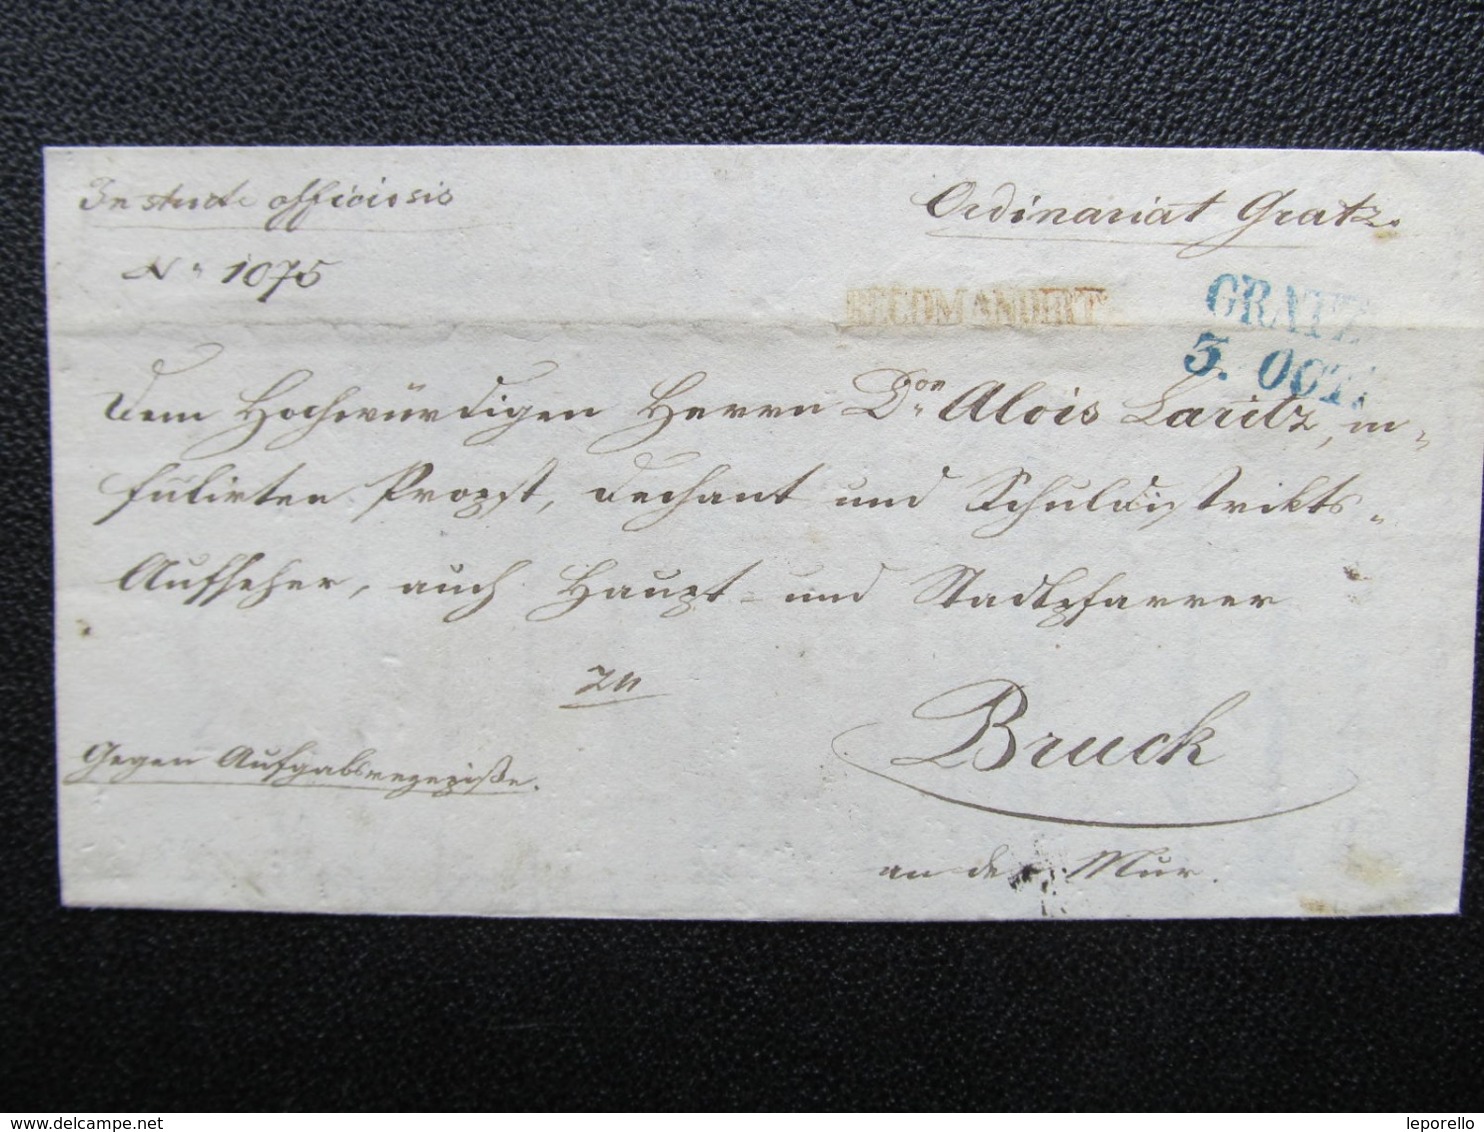 In studii officiosis
Ordinariat Gratz.
Nr 1075
RECOMANDIRT
GRATZ
3. OCT.
Dem Hochwürdigen Herrn Don Alois Laritz, in-
fulirten Propst, Dechant und Schuldistrikts-
Aufseher, auch Haupt- und Stadtpfarrer
zu
Bruck
Gegen Aufgabsrezepisse.
an der Mur.
leporello
delcampe.net